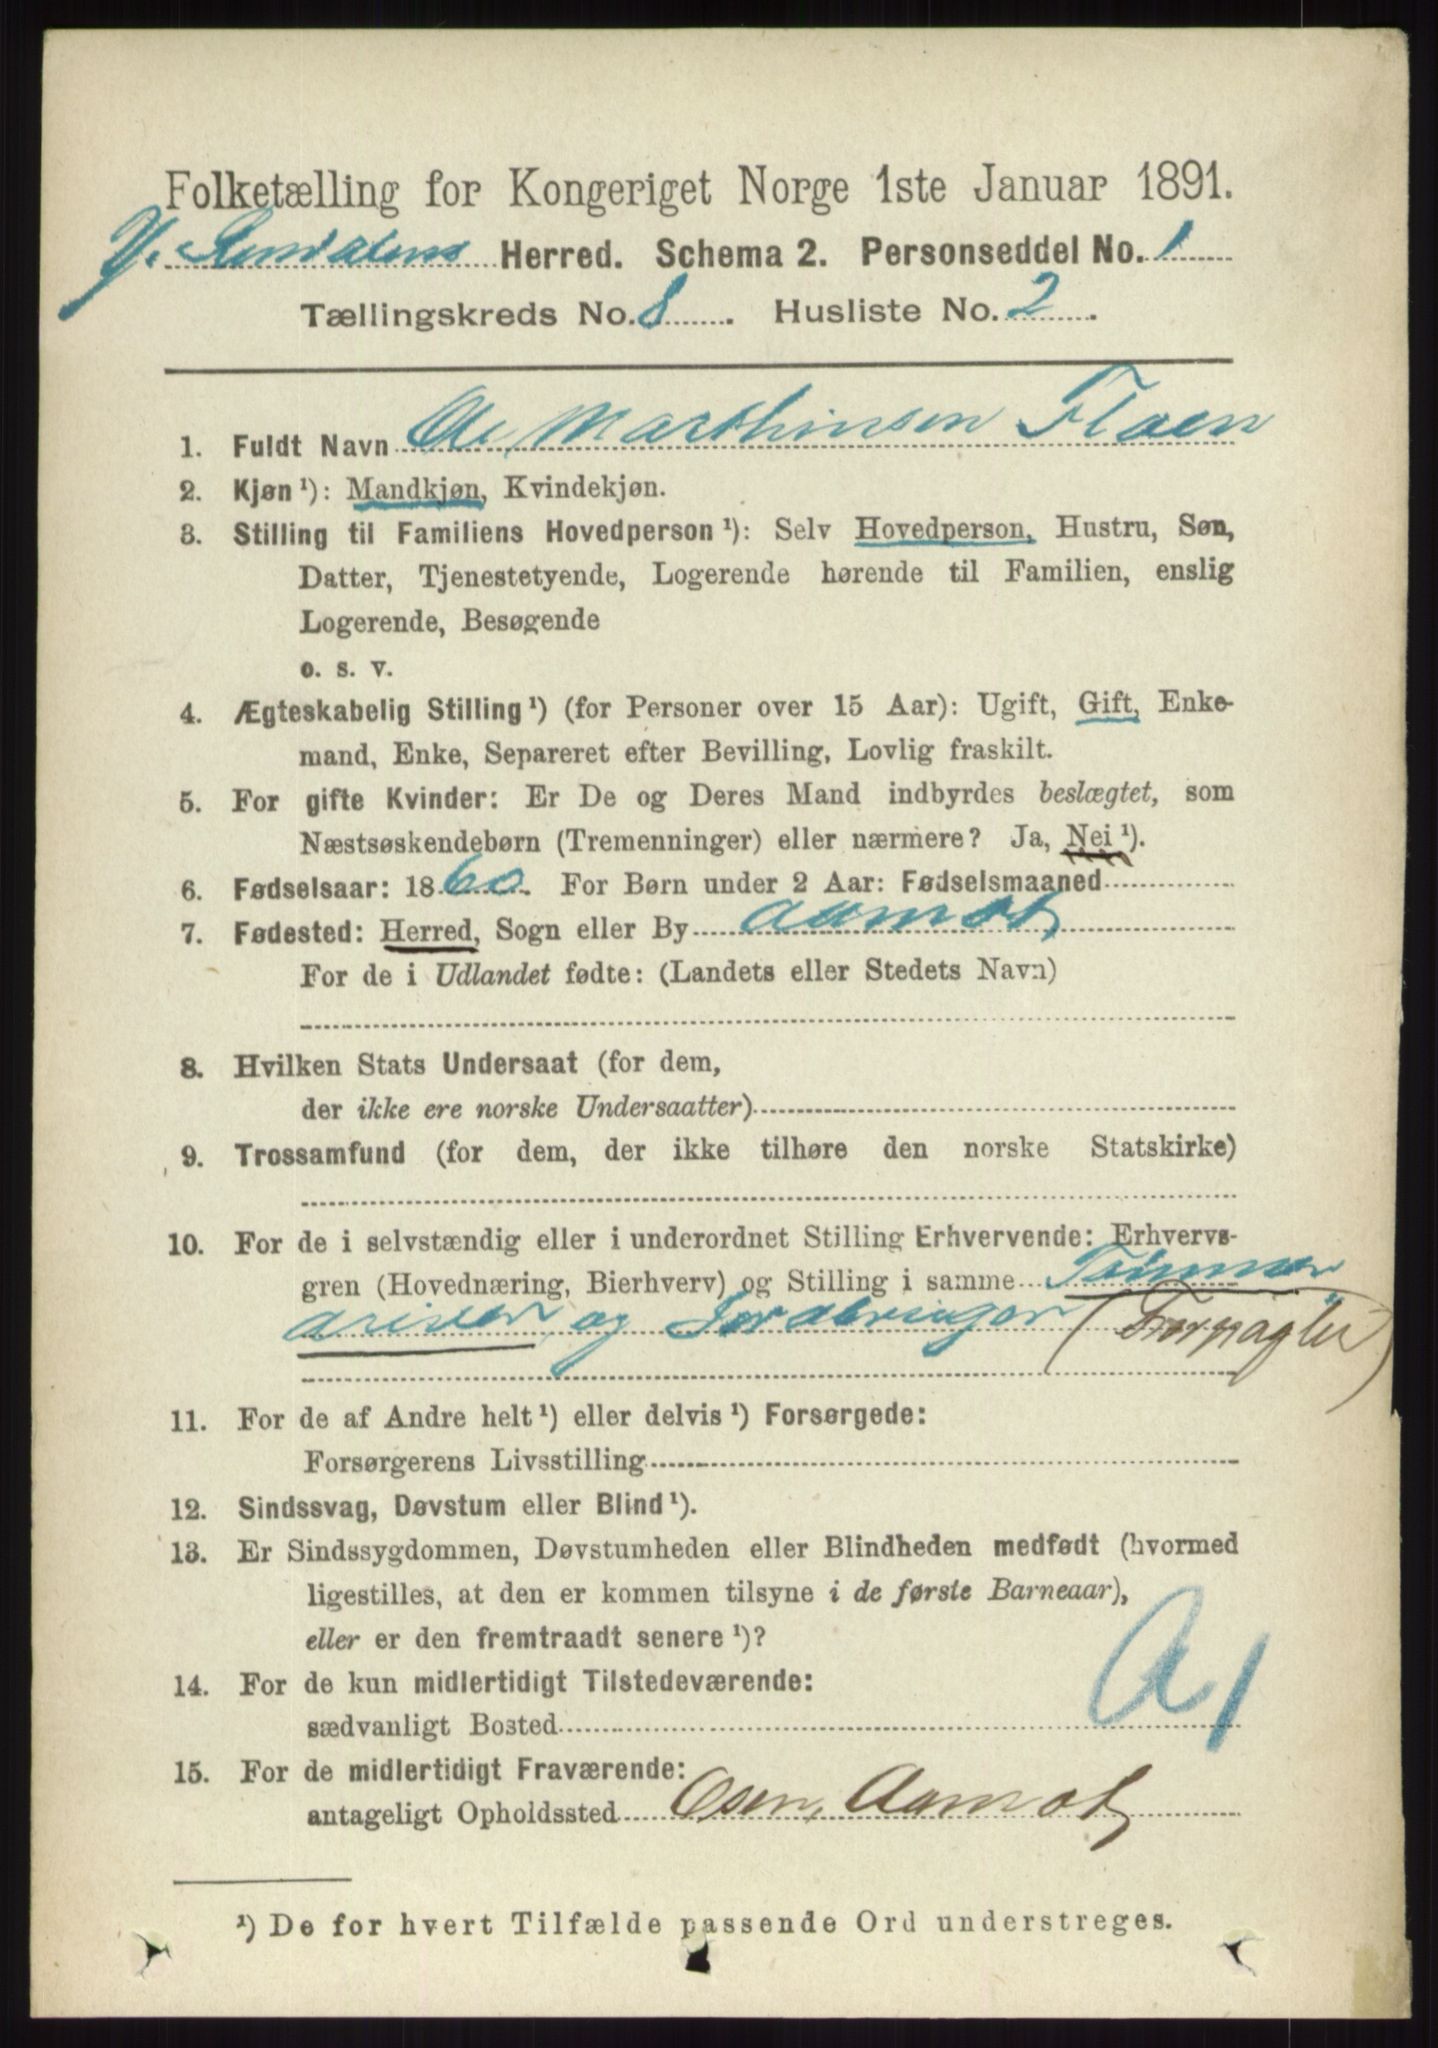 Folketælling for Kongeriget Norge 1ste Januar 1891.
Y. Rendalens Herred. Schema 2. Personseddel No. 1
Tællingskreds No. 8. Husliste No. 2.
1. Fuldt Navn Ole Marthinsen Floen
2. Kjøn ¹): Mandkjøn, Kvindekjøn.
3. Stilling til Familiens Hovedperson ¹): Selv Hovedperson, Hustru, Søn,
Datter, Tjenestetyende, Logerende hørende til Familien, enslig
Logerende, Besøgende
o. s. v.
4. Ægteskabelig Stilling ¹) (for Personer over 15 Aar): Ugift, Gift, Enke-
mand, Enke, Separeret efter Bevilling, Lovlig fraskilt.
5. For gifte Kvinder: Er De og Deres Mand indbyrdes beslægtet, som
Næstsøskendebørn (Tremenninger) eller nærmere? Ja, Nei ¹).
6. Fødselsaar: 1860. For Børn under 2 Aar: Fødselsmaaned
7. Fødested: Herred, Sogn eller By Aamot
For de i Udlandet fødte: (Landets eller Stedets Navn)
8. Hvilken Stats Undersaat (for dem,
der ikke ere norske Undersaatter)
9. Trossamfund (for dem, der ikke tilhøre den norske Statskirke)
10. For de i selvstændig eller i underordnet Stilling Erhvervende: Erhvervs-
gren (Hovednæring, Bierhverv) og Stilling i samme Tømmer
driver og Jordbruger (Forpagter)
11. For de af Andre helt ¹) eller delvis ¹) Forsørgede:
Forsørgerens Livsstilling
12. Sindssvag, Døvstum eller Blind ¹).
13. Er Sindssygdommen, Døvstumheden eller Blindheden medfødt (hvormed
ligestilles, at den er kommen tilsyne i de første Barneaar),
eller er den fremtraadt senere ¹)?
14. For de kun midlertidigt Tilstedeværende:
sædvanligt Bosted
A1
15. For de midlertidigt Fraværende:
antageligt Opholdssted Osen, Aamot
¹) De for hvert Tilfælde passende Ord understreges.